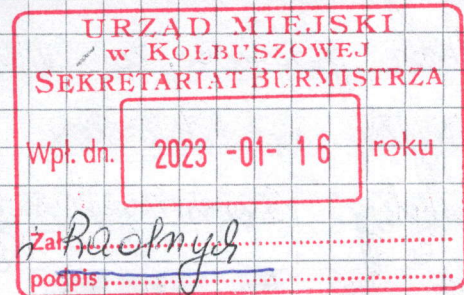 URZĄD MIEJSKI
W KOLBUSZOWEJ
SEKRETARIAT BURMISTRZA
Wpł. dn. 2023 -01- 16 roku
Zał. Radnych
podpis